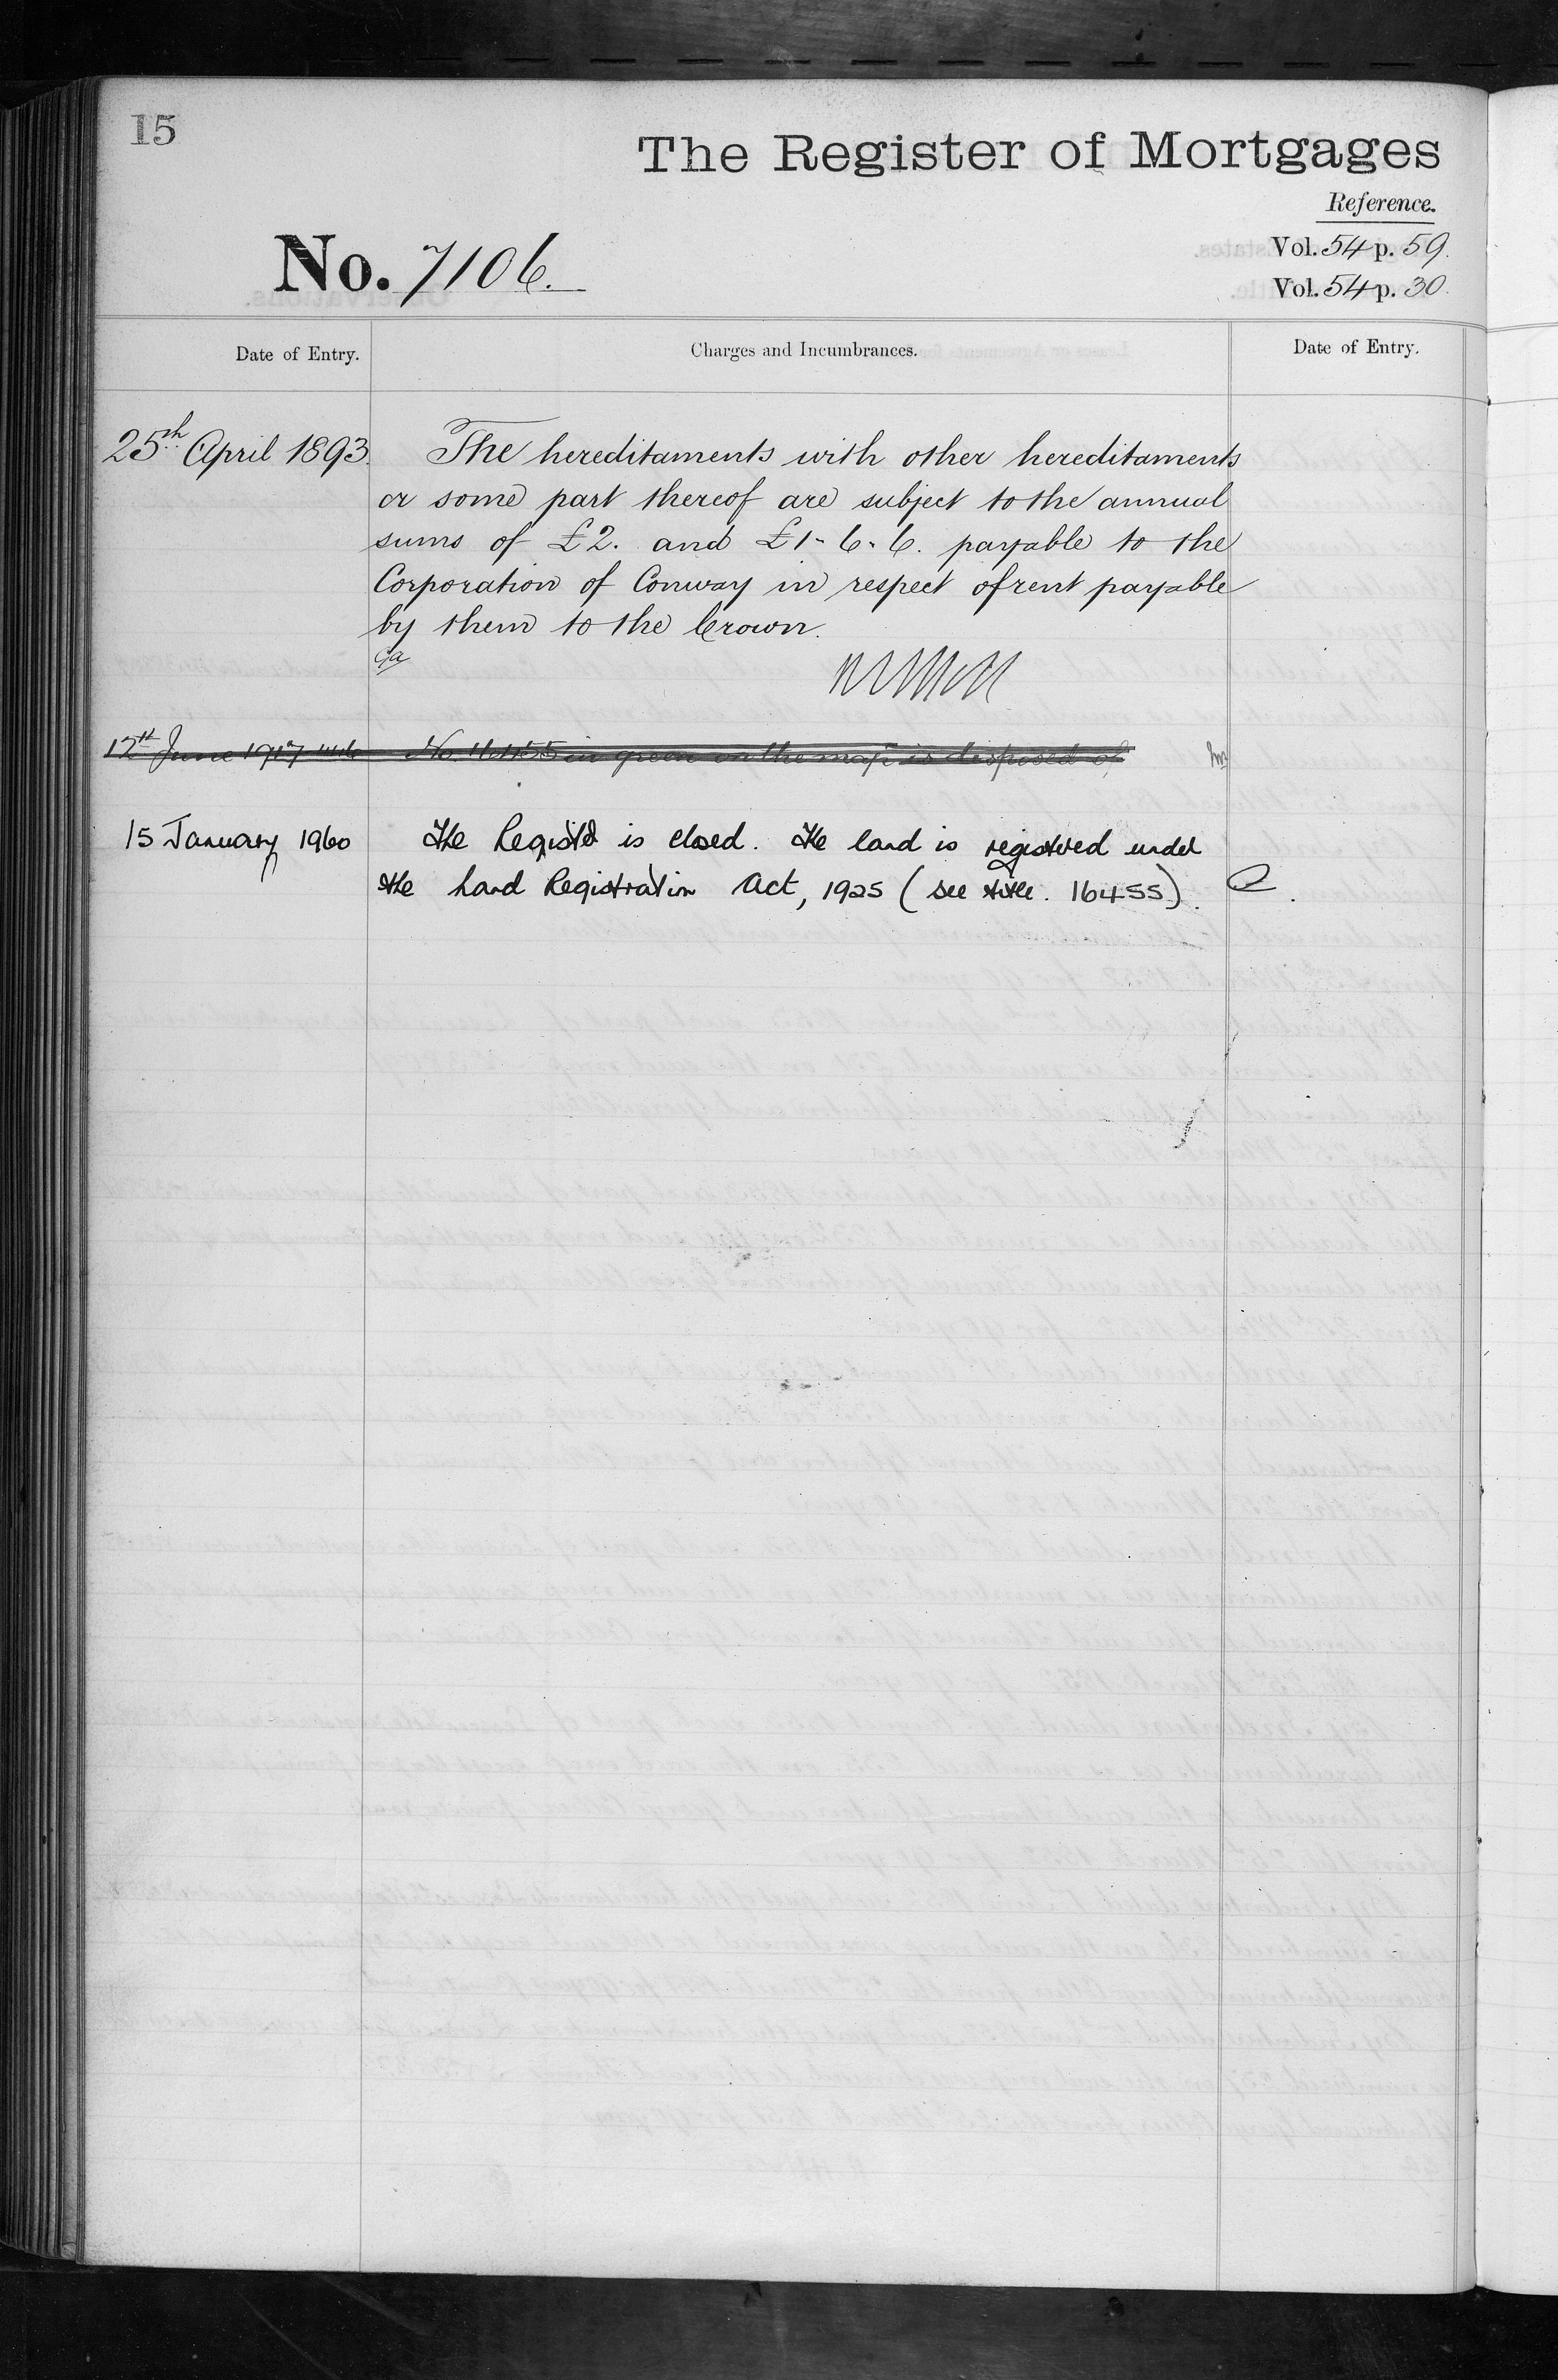 15
The Register of Mortgages
Reference.
No. 7106.
Vol. 54 p. 59.
Vol. 54 p. 30.
Date of Entry.
Charges and Incumbrances.
Date of Entry.
25th April 1893.
The hereditaments with other hereditaments
or some part thereof are subject to the annual
sums of £2. and £1-6-6. payable to the
Corporation of Conway in respect of rent payable
by them to the Crown.
12th June 1917 No. 16455 in green on the map is disposed of
15 January 1960
The Register is closed. The land is registered under
the Land Registration Act, 1925 (see title. 16455).